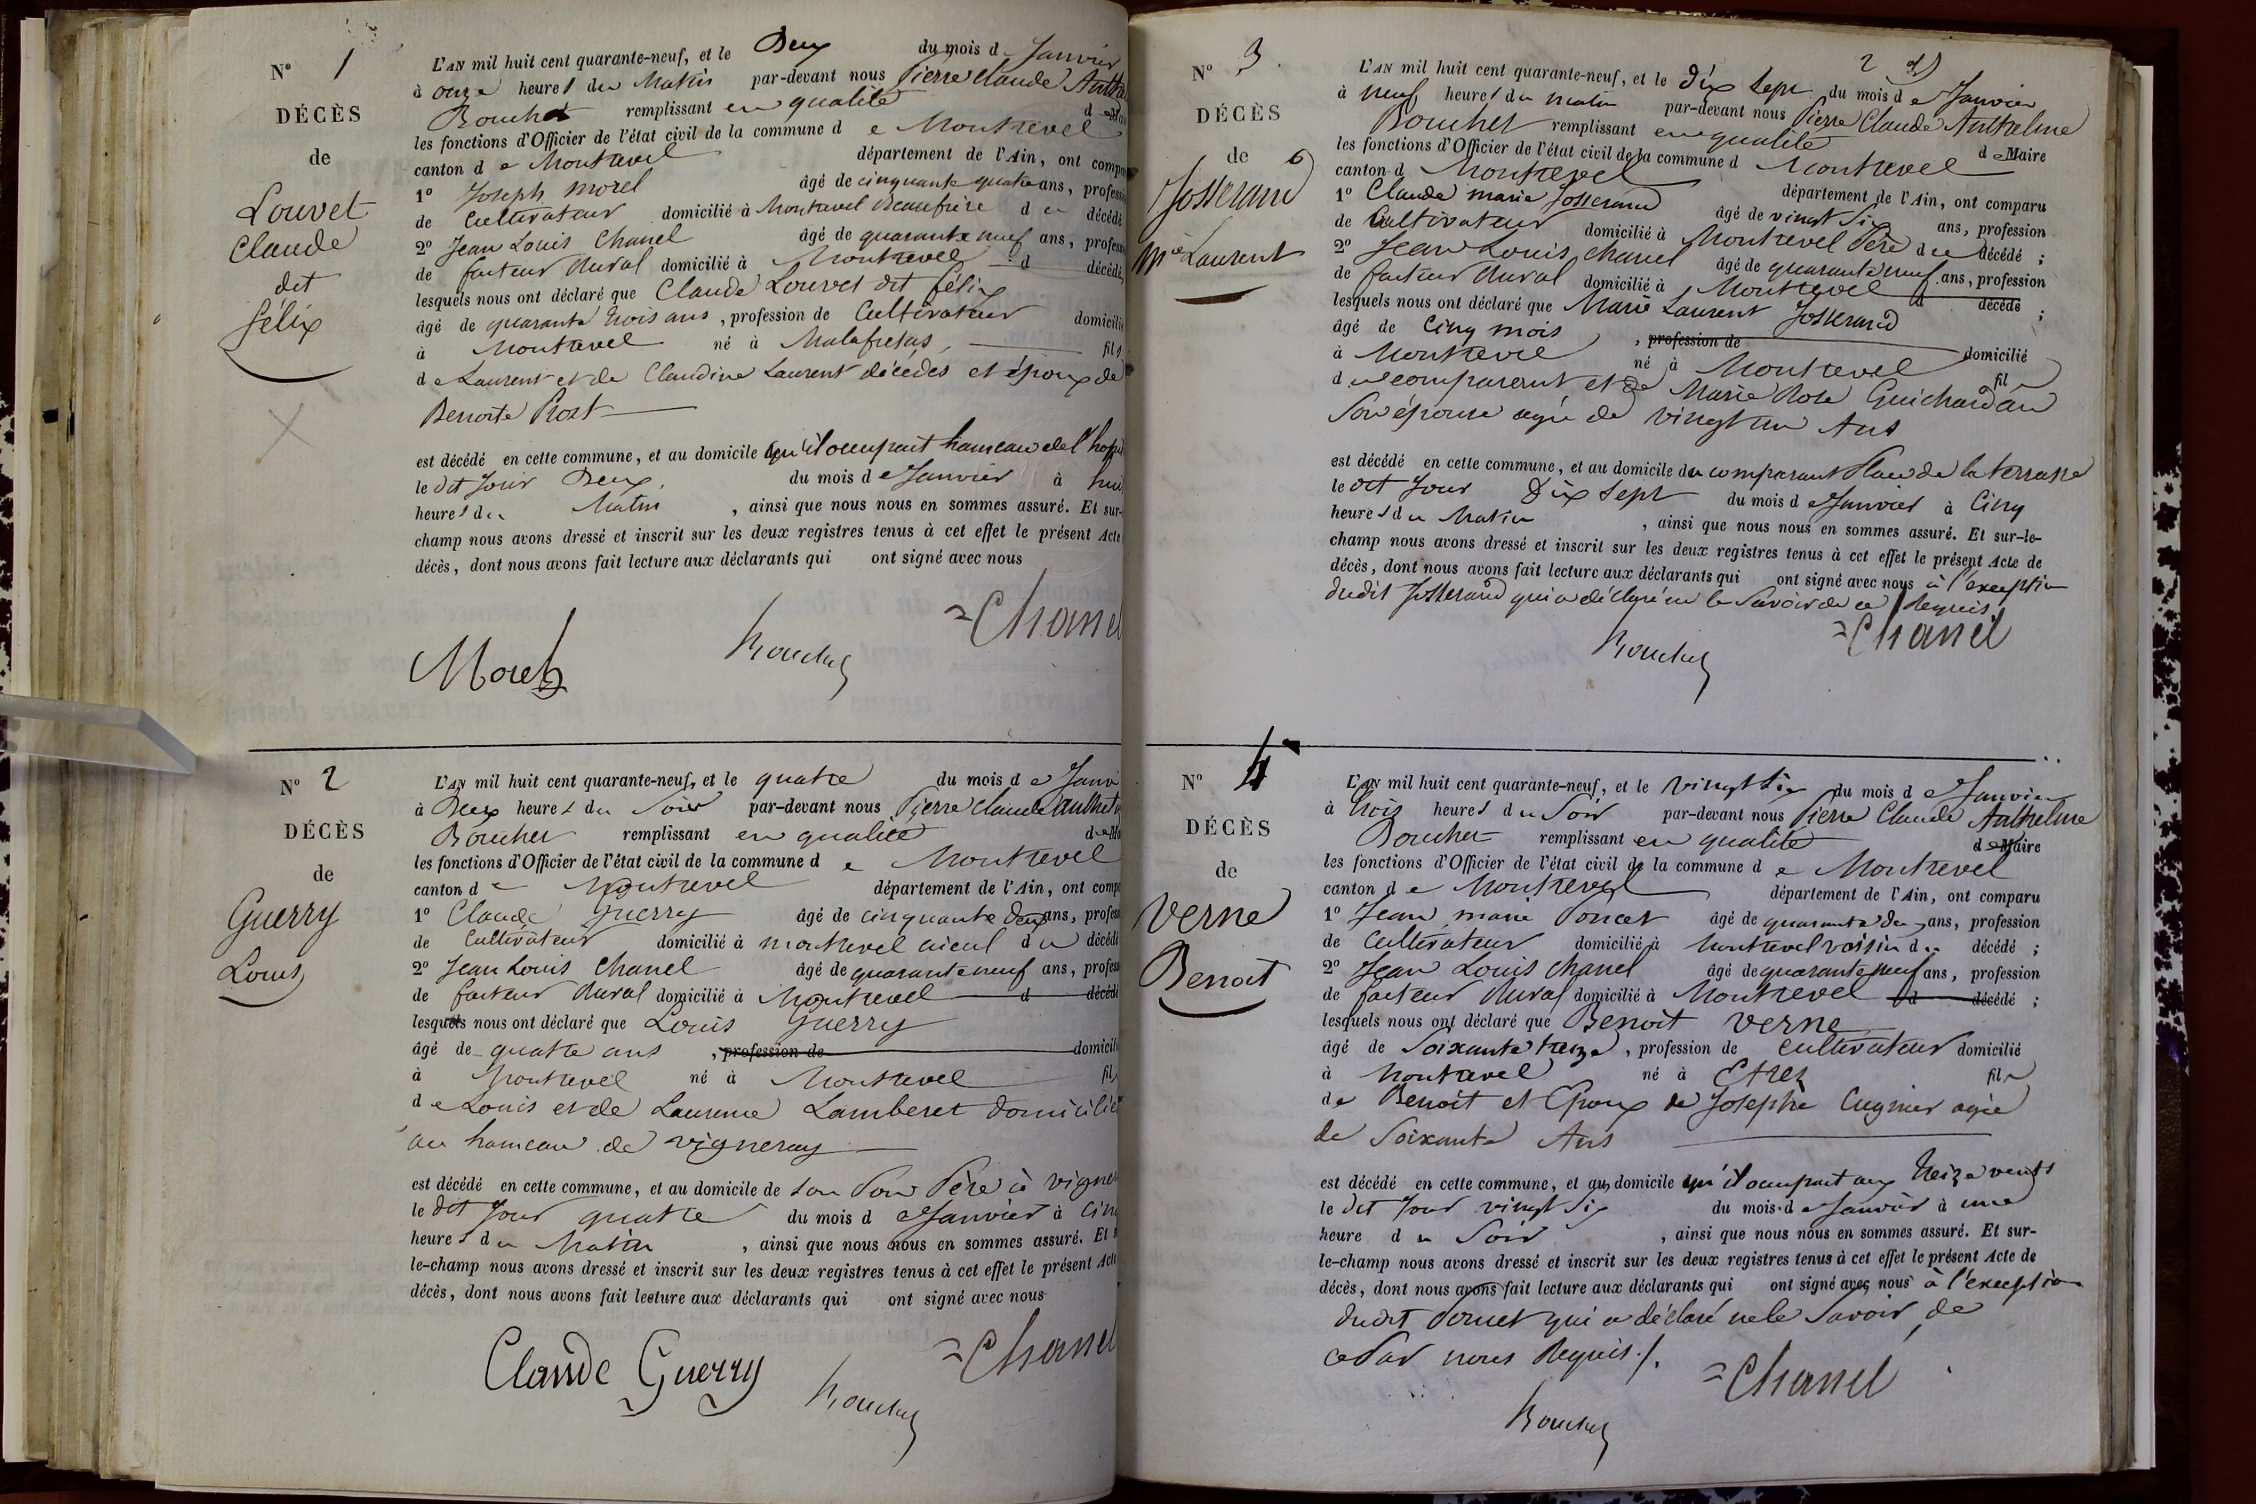 N° 1
DÉCÈS
de
Louvet
Claude
dit
félix
L'AN mil huit cent quarante-neuf, et le Deux du mois de Janvier
à onze heures du Matin par-devant nous Pierre Claude
Bouchet remplissant en qualité de
les fonctions d'Officier de l'état civil de la commune de Montrevel
canton de Montrevel département de l'Ain, ont
1° Joseph Morel âgé de cinquante quatre ans,
de Cultivateur domicilié à Montrevel Beaufrère du décédé
2° Jean Louis Chanel âgé de quarante neuf ans,
de facteur Rural domicilié à Montrevel d décédé,
lesquels nous ont déclaré que Claude Louvet dit félix
âgé de quarante trois ans, profession de Cultivateur domicilié
à Montrevel né à Malafretas, fils
de Laurent et de Claudine Laurent décédés et époux de
Benoite Prost
est décédé en cette commune, et au domicile qu'il occupait hameau de
le dit jour Deux du mois de Janvier à
heures du Matin, ainsi que nous nous en sommes assuré. Et sur-
champ nous avons dressé et inscrit sur les deux registres tenus à cet effet le présent Acte
décès, dont nous avons fait lecture aux déclarants qui ont signé avec nous
Morel Bouchet Chanel
N° 2
DÉCÈS
de
Guerry
Louis
L'AN mil huit cent quarante-neuf, et le quatre du mois de
à Deux heures du Soir par-devant nous Pierre Claude
Bouchet remplissant en qualité
les fonctions d'Officier de l'état civil de la commune de Montrevel
canton de Montrevel département de l'Ain, ont
1° Claude Guerry âgé de cinquante deux ans,
de Cultivateur domicilié à montrevel aieul du décédé
2° Jean Louis Chanel âgé de quarante neuf ans,
de facteur Rural domicilié à Montrevel d décédé
lesquels nous ont déclaré que Louis Guerry
âgé de quatre ans, profession de
à Montrevel né à Montrevel fils
de Louis et de Laurence Lamberet domiciliés
au hameau de vigneray
est décédé en cette commune, et au domicile de son Père à
le dit jour quatre du mois de Janvier à
heures du Matin, ainsi que nous nous en sommes assuré. Et
le-champ nous avons dressé et inscrit sur les deux registres tenus à cet effet le présent Acte
décès, dont nous avons fait lecture aux déclarants qui ont signé avec nous
Claude Guerry Bouchet Chanel
2
N° 3
DÉCÈS
de
Josserand
Mie Laurent
L'AN mil huit cent quarante-neuf, et le dix Sept du mois de Janvier
à neuf heures du matin par-devant nous Pierre Claude Anthelme
Bouchet remplissant en qualité de Maire
les fonctions d'Officier de l'état civil de la commune d Montrevel
canton d Montrevel département de l'Ain, ont comparu
1° Claude marie Josserand âgé de vingt Six ans, profession
de Cultivateur domicilié à Montrevel Père du décédé ;
2° Jean Louis Chanel âgé de quarante neuf ans, profession
de facteur Rural domicilié à Montrevel d décédé ;
lesquels nous ont déclaré que Marie Laurent Josserand
âgé de Cinq mois, profession de domicilié
à Montrevel né à Montrevel fils
du comparant et de Marie Rose Guichardan
Son épouse agée de vingt un Ans
est décédé en cette commune, et au domicile du comparant Place de la terrasse
le dit jour Dix Sept du mois de Janvier à Cinq
heures du Matin, ainsi que nous nous en sommes assuré. Et sur-le-
champ nous avons dressé et inscrit sur les deux registres tenus à cet effet le présent Acte de
décès, dont nous avons fait lecture aux déclarants qui ont signé avec nous à l'exception
dudit Josserand qui a déclaré ne le Savoir de ce Requis
Bouchet Chanel
N° 4
DÉCÈS
de
Verne
Benoit
L'AN mil huit cent quarante-neuf, et le vingt Six du mois de Janvier
à trois heures du Soir par-devant nous Pierre Claude Anthelme
Boucher remplissant en qualité de Maire
les fonctions d'Officier de l'état civil de la commune de Montrevel
canton de Montrevel département de l'Ain, ont comparu
1° Jean marie Poncet âgé de quarante deux ans, profession
de Cultivateur domicilié à Montrevel voisin du décédé ;
2° Jean Louis Chanel âgé de quarante neuf ans, profession
de facteur Rural domicilié à Montrevel d décédé ;
lesquels nous ont déclaré que Benoit Verne
âgé de Soixante treize, profession de cultivateur domicilié
à Montrevel né à Etrez fils
de Benoit et Epoux de Josephe Cugnier agée
de Soixante Ans
est décédé en cette commune, et au domicile qu'il occupait aux treize vents
le dit jour vingt Six du mois de Janvier à une
heure du Soir, ainsi que nous nous en sommes assuré. Et sur-
le-champ nous avons dressé et inscrit sur les deux registres tenus à cet effet le présent Acte de
décès, dont nous avons fait lecture aux déclarants qui ont signé avec nous à l'exception
dudit Poncet qui a déclaré ne le Savoir, de
ce Par nous Requis ./.
Chanel
Bouchet